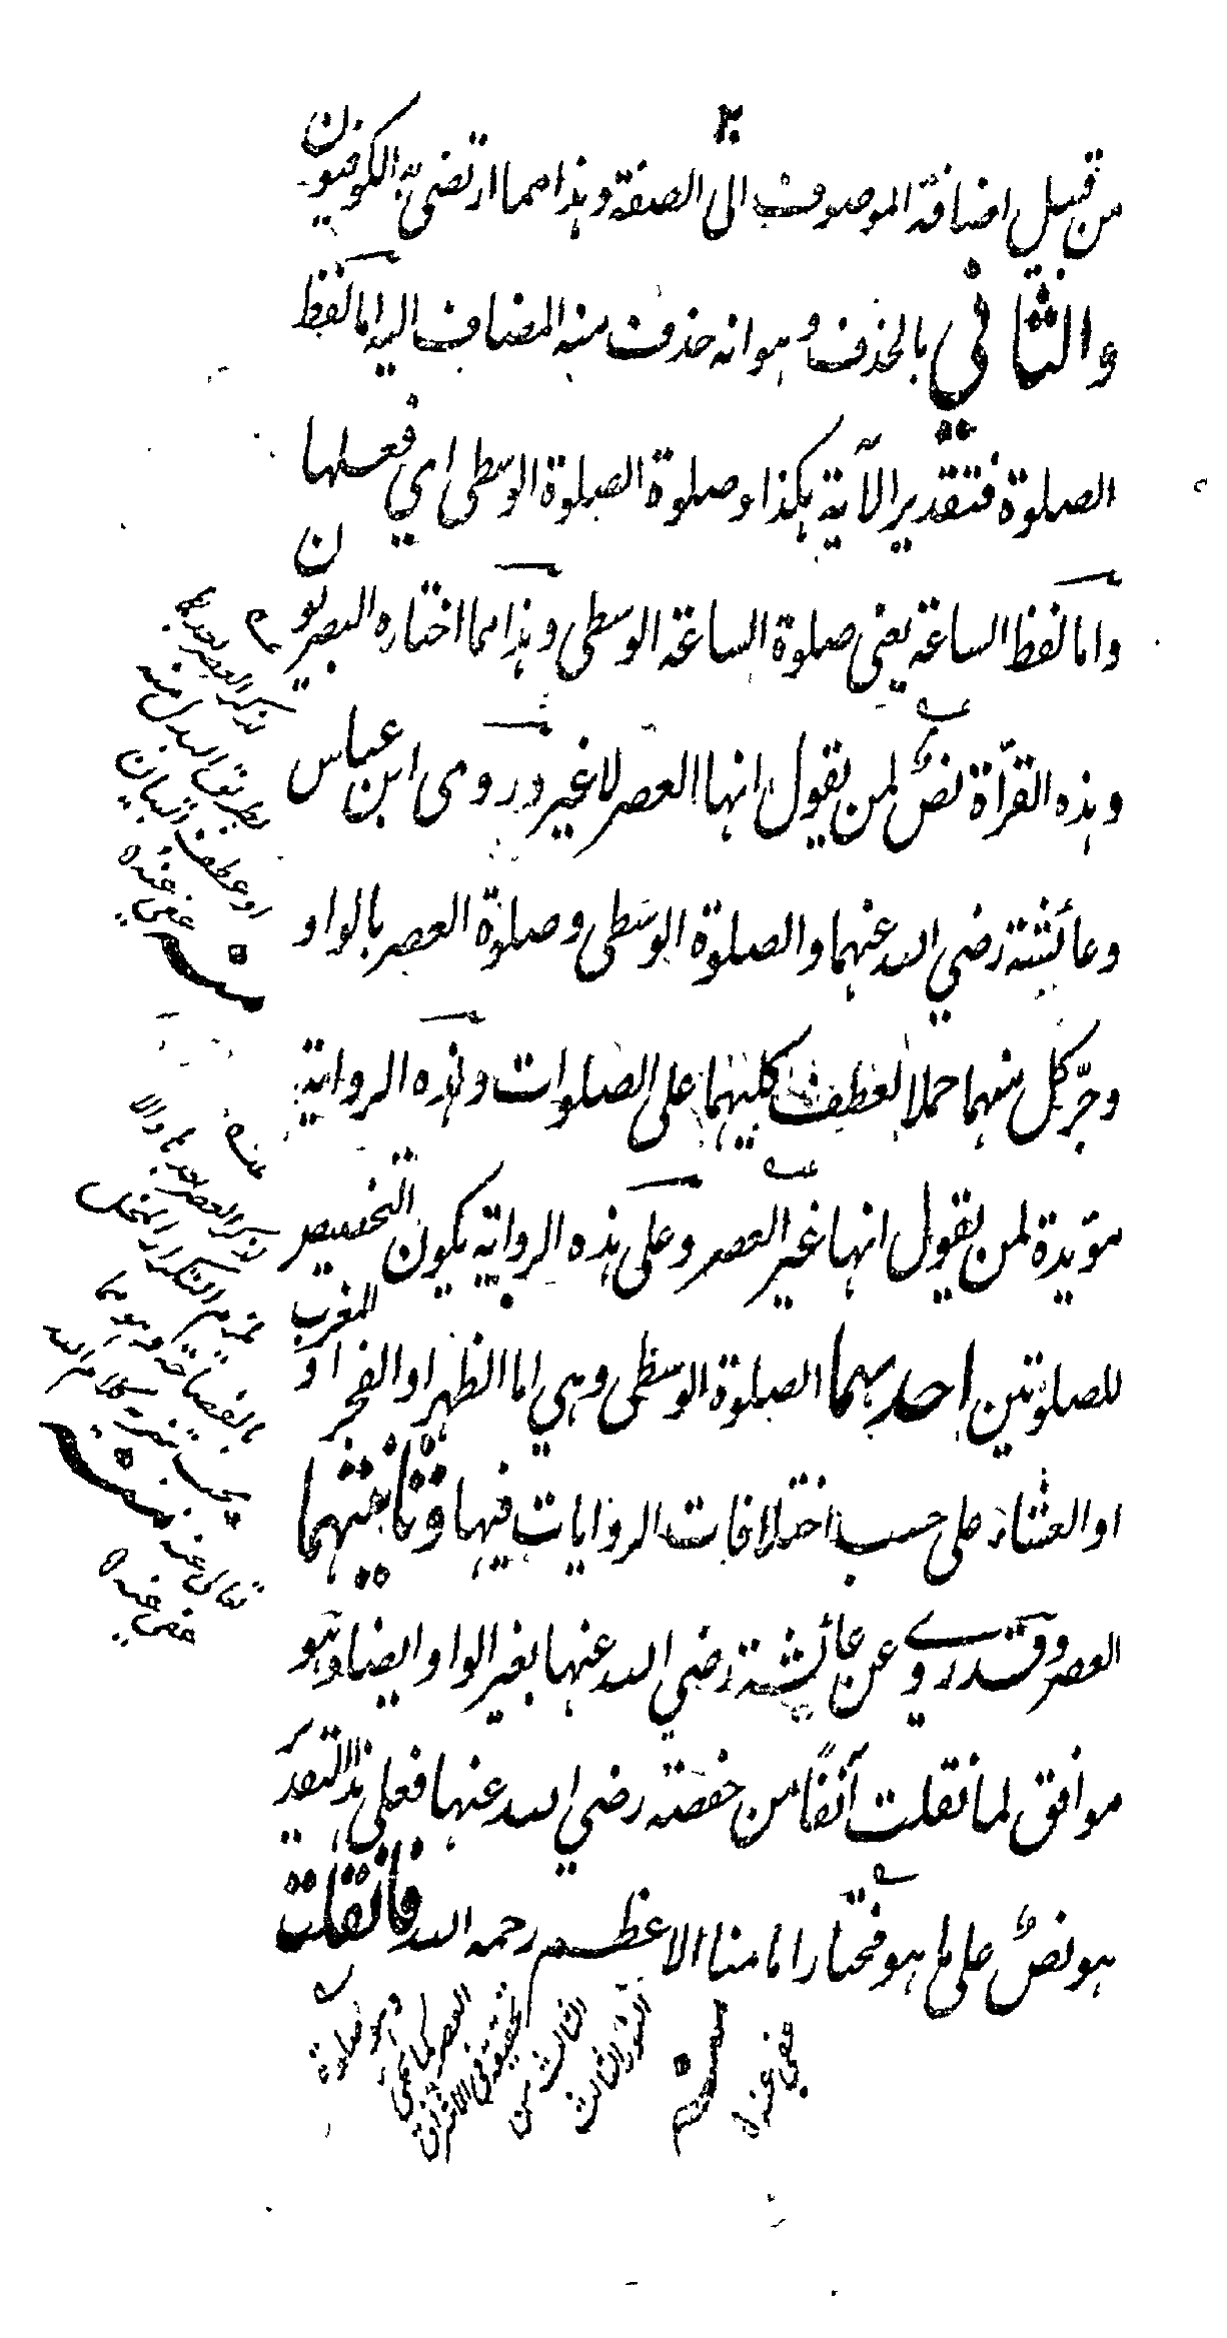 ٢
من قبيل اضافة الموصوف الى الصفة وهذا مما ارتضى به الكوفيون
والثاني بالحذف وهو انه حذف منه المضاف اليه اما لفظ
الصلوة فتقدير الآية هكذا وصلوة الصلوة الوسطى اي فعلها
واما لفظ الساعة يعني صلوة الساعة الوسطى وهذا مما اختاره البصريون
وهذه القرآة نصٌ لمن يقول انها العصر لا غير وروى ابن عباس
وعائشة رضي الله عنهما والصلوة الوسطى وصلوة العصر بالواو
وجرّ كل منهما حملا لعطف كليهما على الصلوات وهذه الرواية
مؤيدة لمن يقول انها غير العصر وعلى هذه الرواية يكون التخصيص
للصلوتين احدهما الصلوة الوسطى وهي اما الظهر او الفجر او المغرب
او العشاء على حسب اختلافات الروايات فيها وثانيتهما
العصر وقد روي عن عائشة رضي الله عنها بغير الواو ايضا وهو
موافق لما نقلت آنفًا من حفصة رضي الله عنها فعلى هذا التقدير
هو نصٌ على ما هو مختار امامنا الاعظم رحمه الله فان قلت
ذكر العصر بعدها
بطريق البدل منه
او عطف البيان
عفي عنه
منه
ذكر العصر بعدها والا
يلزم التكرار المخل
بالفصاحة وهو مما
يجب تنزيه كلام الله
تعالى عنه منه
عفي عنه
وهو صلوة
العصر كما يجيء
تحقيقه في الاشراق
الثالث من
النور الثالث
منه
عفي عنه